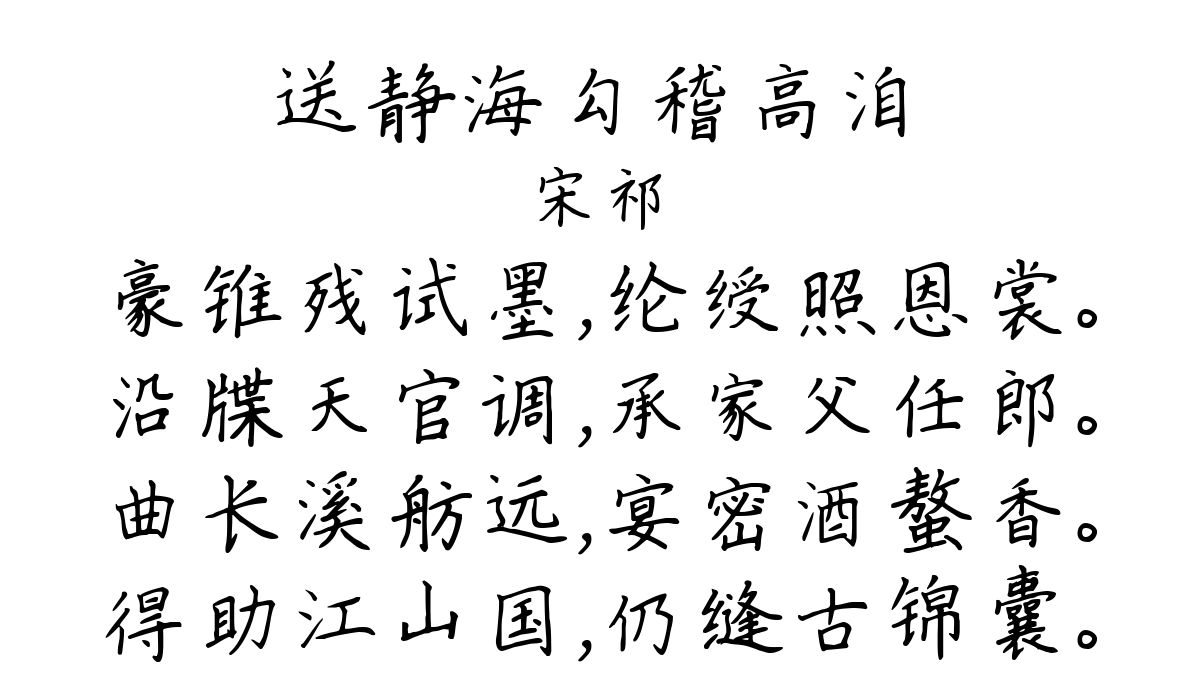 送静海勾稽高洎
宋祁
豪锥残试墨,纶绶照恩裳。
沿牒天官调,承家父任郎。
曲长溪舫远,宴密酒螯香。
得助江山国,仍缝古锦囊。